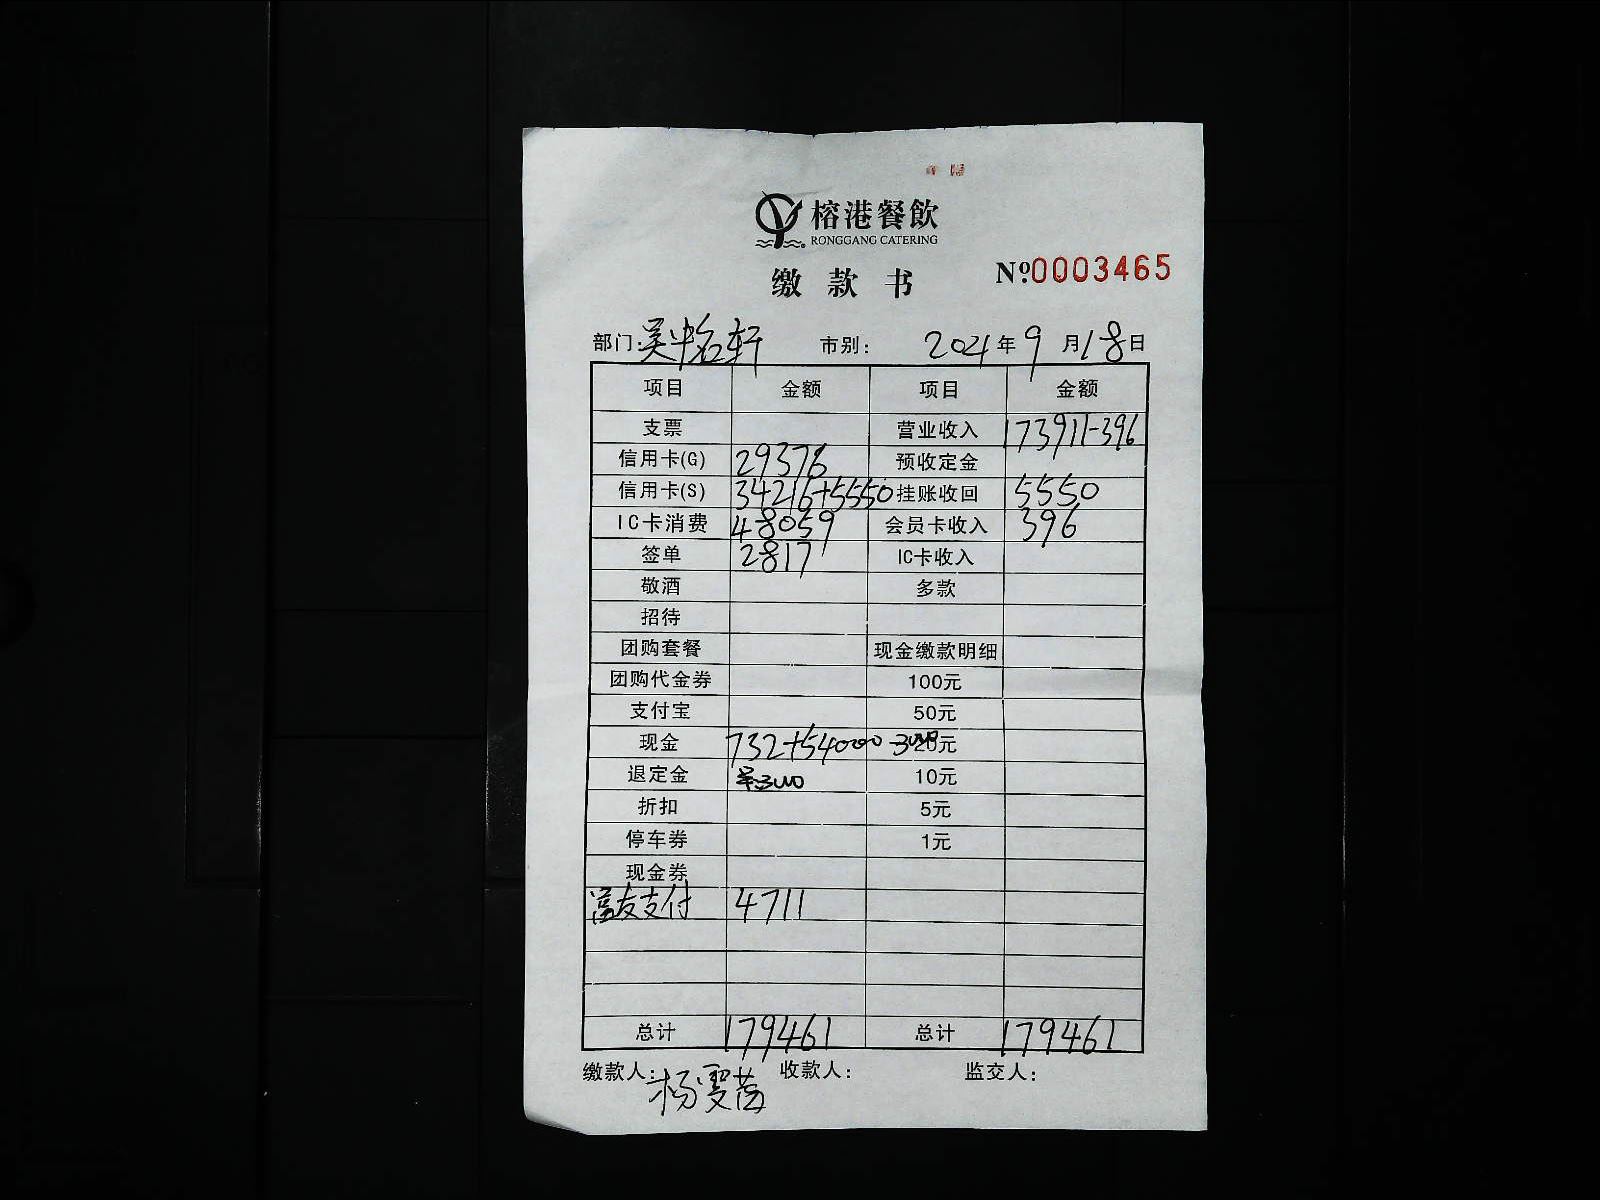 榕港餐飲
RONGGANG CATERING
缴款书 №.0003465
部门:吴中名轩 市别: 2021年9月18日
项目 金额 项目 金额
支票 营业收入 173911-396
信用卡(G) 29376 预收定金
信用卡(S) 34216+5550 挂账收回 5550
IC卡消费 48059 会员卡收入 396
签单 2817 IC卡收入
敬酒 多款
招待
团购套餐 现金缴款明细
团购代金券 100元
支付宝 50元
现金 732+54000 20元
退定金 10元
折扣 5元
停车券 1元
现金券
富友支付 4711
总计 179461 总计 179461
缴款人: 杨雯茵 收款人: 监交人: